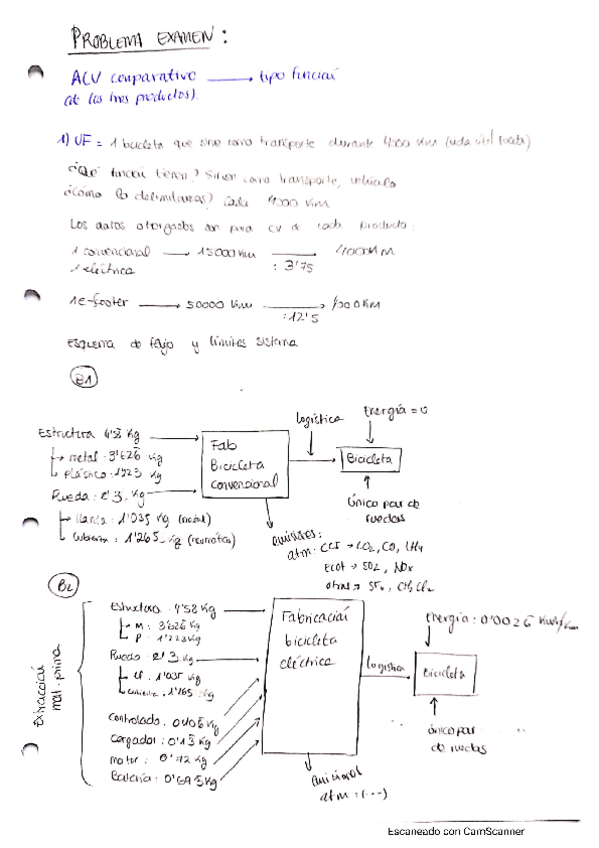 PROBLEMA EXAMEN :
ACV comparativo → tipo función
de los tres productos).
1) UF = 1 bicicleta que sirve como transporte durante 4000 km (vida útil rueda)
¿Qué función tienen? Sirven como transporte, vehículo
¿Cómo lo delimitamos? Cada 4000 km
Los datos otorgados son para cv de cada producto:
1 convencional → 15000 km → 4000 km
1 eléctrica : 3'75
1 E-footer → 50000 km → 4000 km
:12'5
esquema de flujo y límites sistema
B1
logística
Energía = 0
Estructura 4'58 kg
metal · 3'626 kg
plástico · 1'223 kg
Rueda : 2'3 kg
llanta : 1'035 kg (metal)
cubierta : 1'265 kg (neumático)
Fab
Bicicleta
convencional
Bicicleta
único par de
ruedas
emisiones:
atm: CCF → CO2, CO, CH4
Ecot → SO2, NOx
otras →
B2
Extracción
mat. prima
Estructura · 4'58 kg
M : 3'626 kg
P · 1'223 kg
Rueda · 2'3 kg
· 1'035 kg
cubierta · 1'265 kg
Controlado : kg
Cargador : 0'13 kg
Motor : 0'72 kg
Batería : 0'693 kg
Fabricación
bicicleta
eléctrica
logística
Energía : 0'0026 kWh/km
Bicicleta
único par
de ruedas
emisiones
atm : (...)
Escaneado con CamScanner